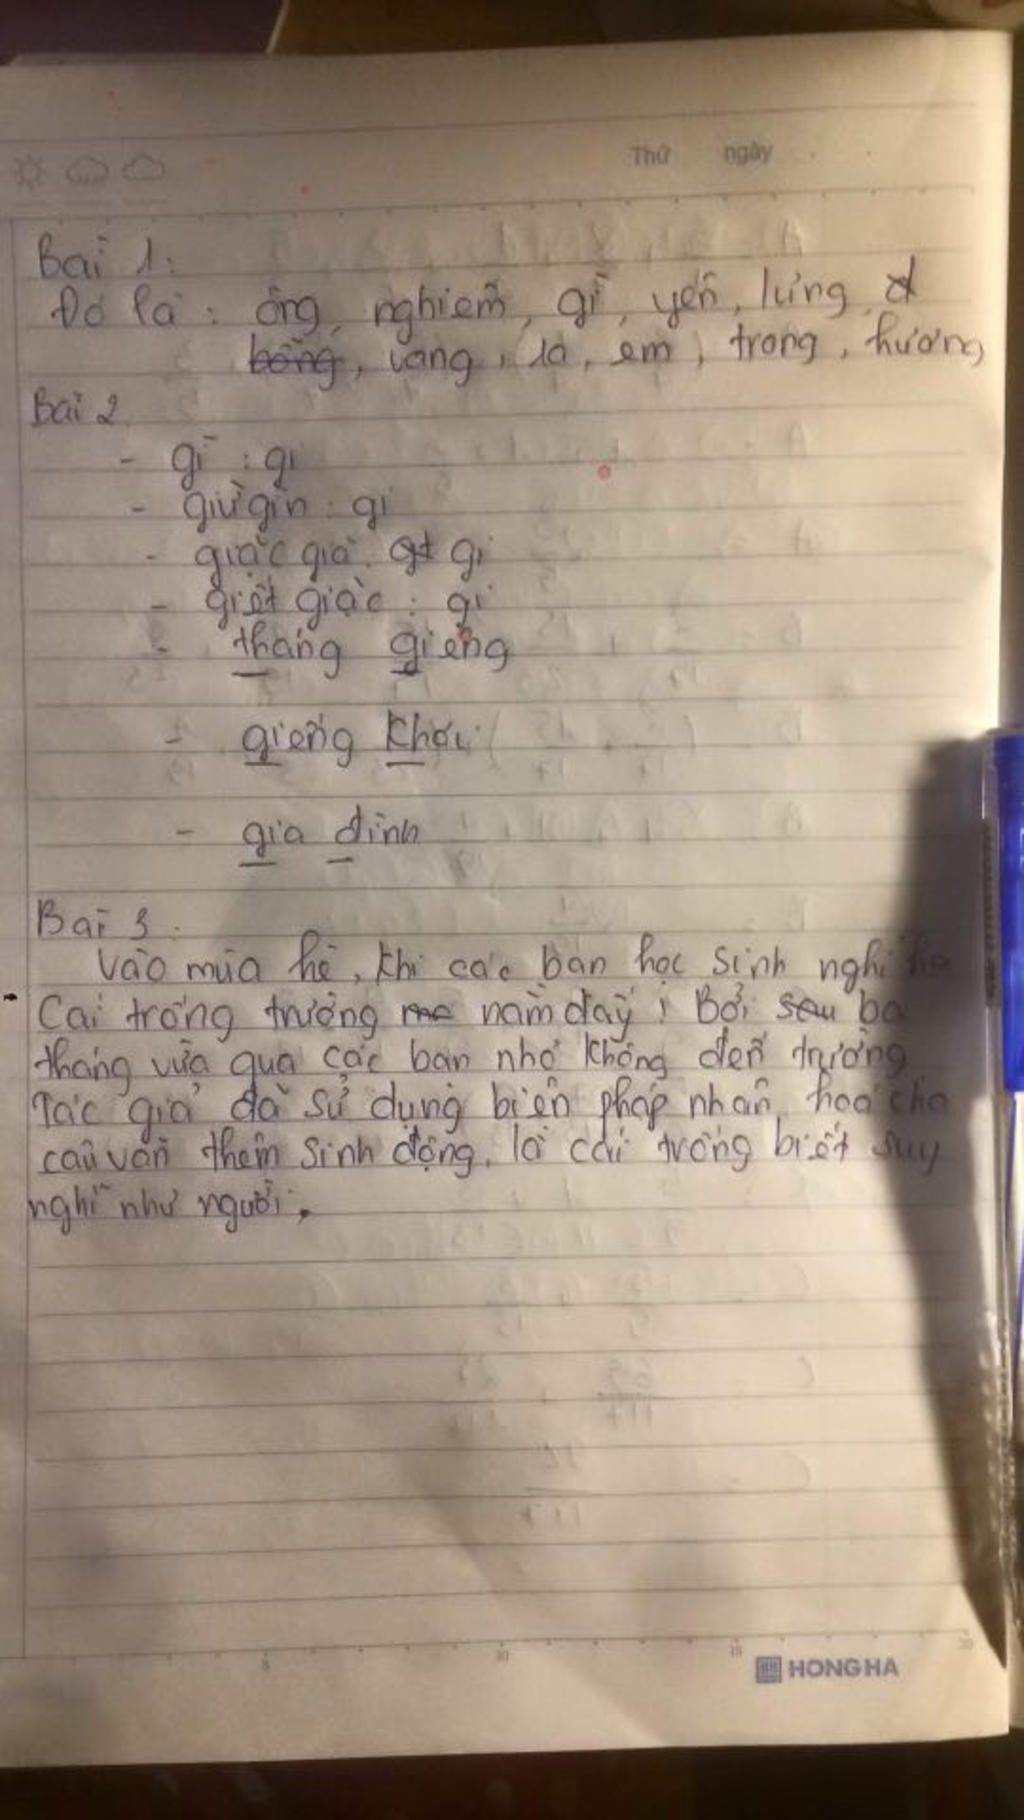 Thứ ngày
Bài 1:
Đó là : ông, nghiêm, gì, yên, lưng,
bông, vang, lá, em, trong, hương
Bài 2
- gì : gi
- giữ gìn : gi
- giặc giã : gi
- giết giặc : gi
- tháng giêng
- giếng khơi
- gia đình
Bài 3.
Vào mùa hè, khi các bạn học sinh nghỉ hè
Cái trống trường nằm đấy ! Bởi sau ba
tháng vừa qua các bạn nhỏ không đến trường
Tác giả đã sử dụng biện pháp nhân hoá cho
câu văn thêm sinh động, là cái trống biết suy
nghĩ như người.
5 10 15 20
HONG HA